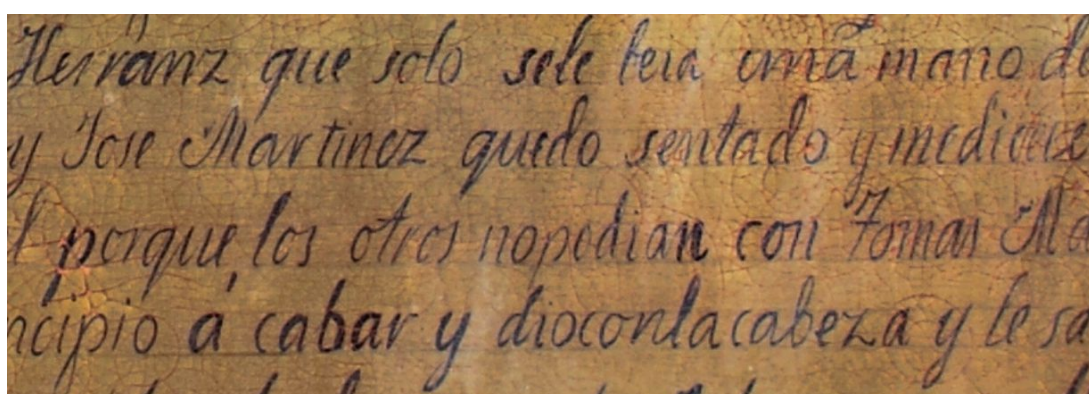 Herranz que solo sele beia unā mano d
y Jose Martinez quedo sentado y
l porque los otros nopodian con Tomas M
ncipio á cabar y dioconlacabeza y le sa